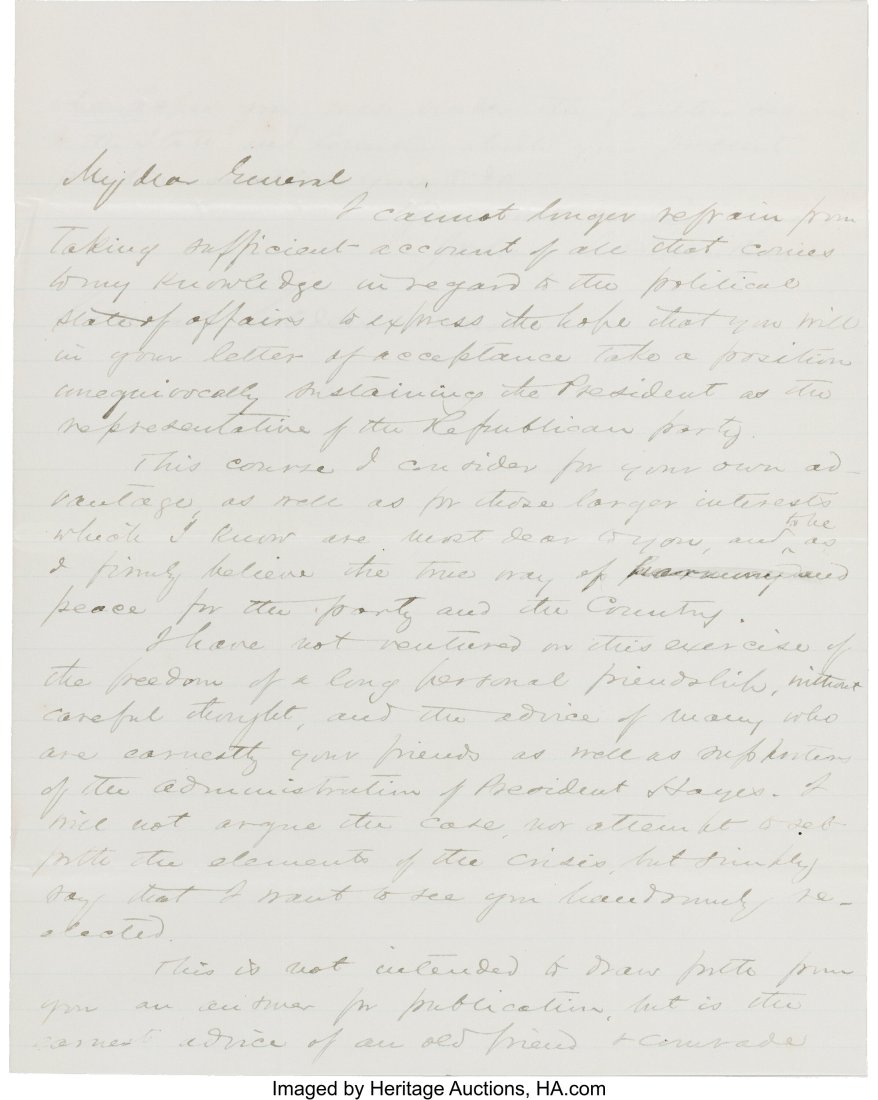 My dear General
I cannot longer refrain from
taking sufficient account of all that comes
to my knowledge in regard to the political
state of affairs to express the hope that you will
in your letter of acceptance take a position
unequivocally sustaining the President as the
representative of the Republican party.
This course I consider for your own ad-
vantage, as well as for those larger interests
which I know are most dear to you, and to be as
I firmly believe the true way of harmony and
peace for the party and the Country.
I have not ventured on this exercise of
the freedom of a long personal friendship, without
careful thought, and the advice of many who
are earnestly your friends as well as supporters
of the administration of President Hayes. I
will not argue the case, nor attempt to set
forth the elements of the crisis, but simply
say that I want to see you handsomely re-
elected.
This is not intended to draw forth from
you an answer for publication, but is the
earnest advice of an old friend & comrade
Imaged by Heritage Auctions, HA.com